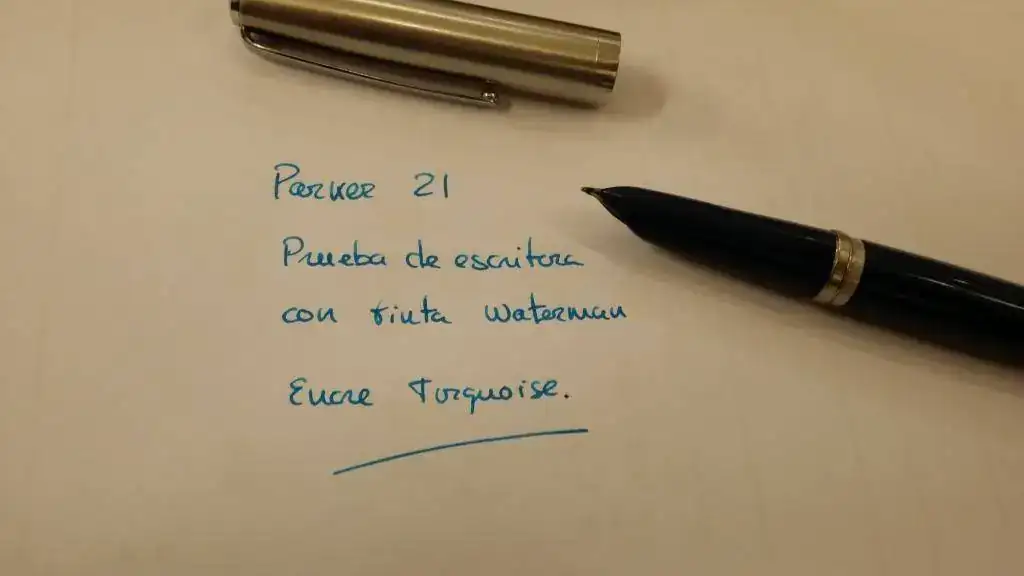 Parker 21
Prueba de escritura
con tinta Waterman
Encre Turquoise.